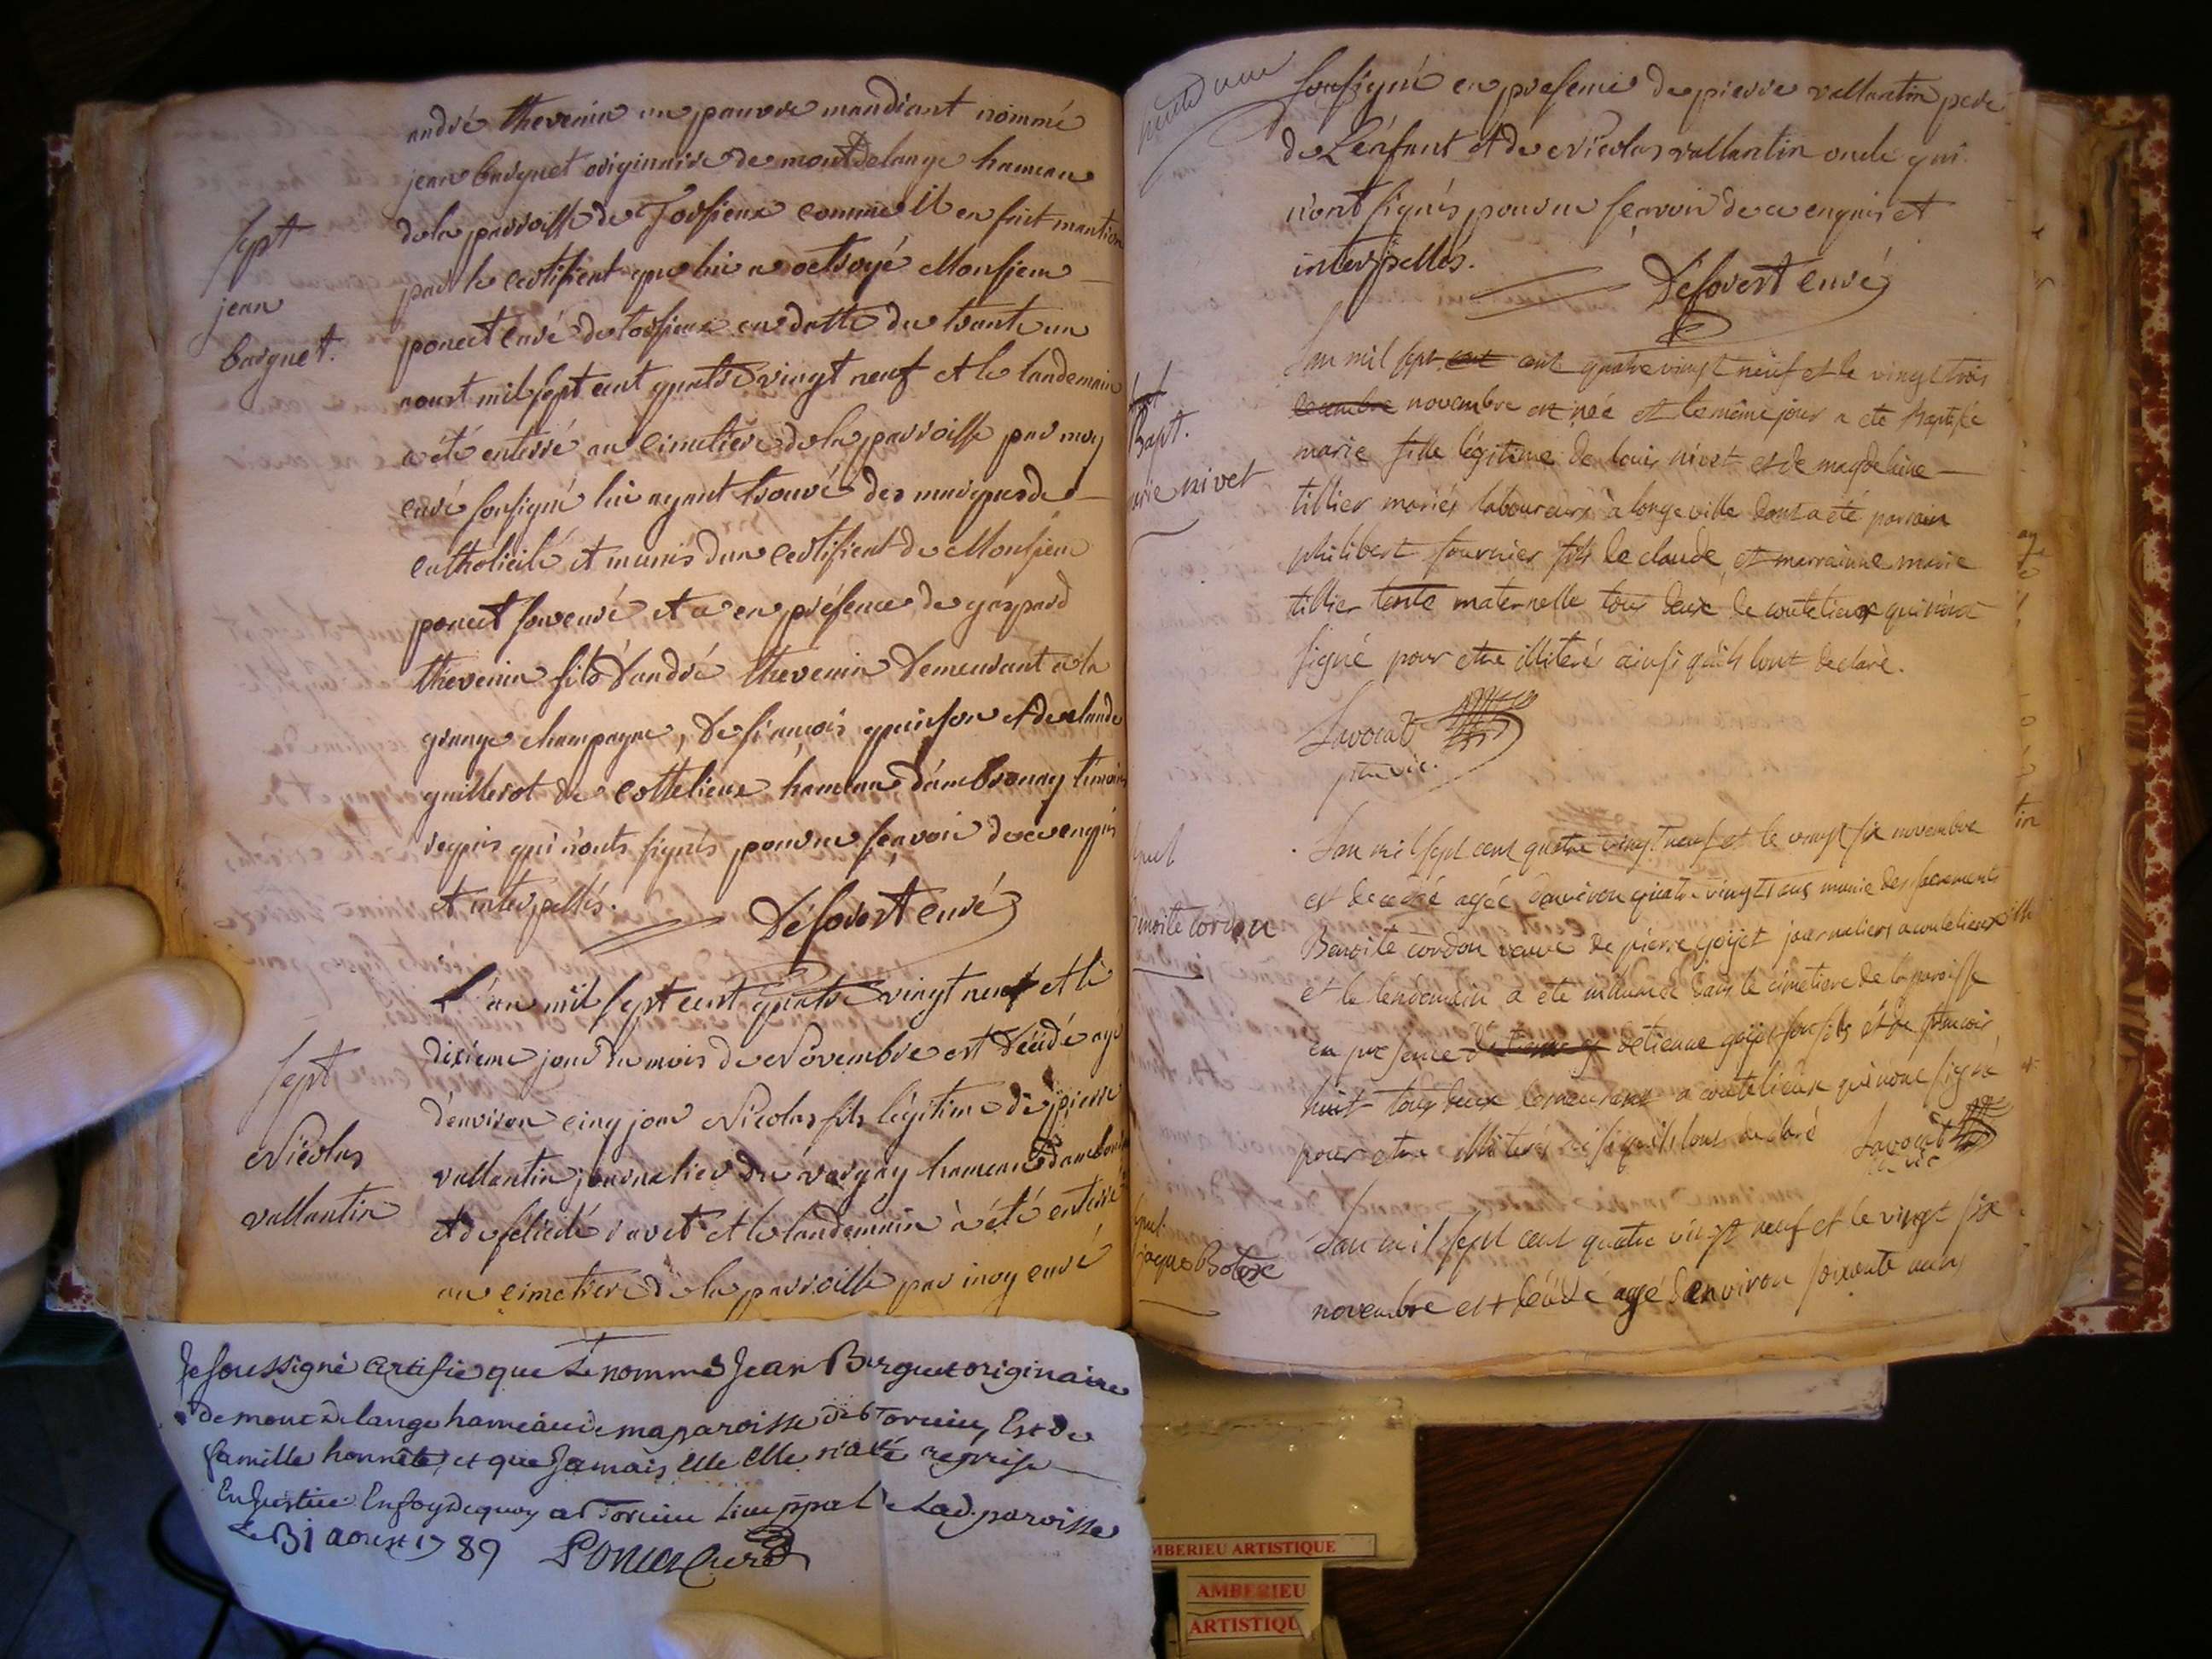 andré thevenin un pauvre mandiant nommé
jean barguet originaire de montdelange hameau
sept
de la parroisse de Torsieux comme il en fait mantion
par le certificat que lui a octroyé Monsieur
jean
poncet curé de torsieux en datte du trante un
barguet.
aoust mil sept cent quatre vingt neuf et le landemain
a été enterré au cimetiere de la parroisse par moy
curé sousigné lui ayant trouvé des marques de
catholicité et munis d'un certificat de Monsieur
poncet son curé et a en présence de gaspard
thevenin fils d'andré thevenin demeurant a la
grange champagne, de françois quinson et de claude
guillerot de cottelieux hameau d'ambronay temoins
requis qui n'onts signés pour ne sçavoir de ce enquis
et interpellés.
Desovert curé
L'an mil sept cent quatre vingt neuf et le
dixieme jour du mois de Novembre est décédé agé
sept
d'environ cinq jour Nicolas fils légitime de pierre
Nicolas
vallantin journalier du vargay hameau d'ambronay
vallantin
et de félicité ravet et le landemain à été enterré
au cimetiere de la parroisse par moy curé
Je soussigné Certifie que Le nommé Jean Barguet originaire
de mont de lange hameau de ma paroisse de Torcieu, Est de
famille honnête, et que Jamais elle elle n'a été reprise
En Justice En foy de quoy a Torcieu lieu ppal de Lad. paroisse
Le 31 aoust 1789 Poncet Curé
sousigné en presence de pierre vallantin pere
de L'enfant et de Nicolas vallantin oncle qui
n'ont signés pour ne sçavoir de ce enquis et
interpellés.
Désovert curé
L'an mil sept cent cent quatre vingt neuf et le vingt trois
decembre novembre est née et le même jour a ete Baptisée
Bapt.
marie fille légitime de louis nivet et de magdelaine
arie nivet
tillier mariés laboureurs à longeville dont a été parrain
philibert fournier fils de claude, et marrainne marie
tillier tente maternelle tous deux de coutelieux qui n'ont
signé pour etre illiterés ainsi qu'ils l'ont declaré.
Savocat
ptre vic.
L'an mil sept cent quatre vingt neuf et le vingt six novembre
est decedée agée d'environ quatre vingts ans munie des sacrements
enoite cordon
Benoite cordon veuve de pierre goijet journaliers a coutelieux
et le lendemain a ete inhumée dans le cimetiere de la paroisse
en presence d'etienne g d'etienne goijet son fils et de françois
huit tous deux demeurant a coutelieux qui n'ont signé
pour etre illiterés ainsi qu'ils l'ont declaré Savocat
ptre vic
L'an mil sept cent quatre vingt neuf et le vingt six
jaque Bolex
novembre est décédé agé d'environ soixante ans
MBERIEU ARTISTIQUE
AMBERIEU
ARTISTIQU